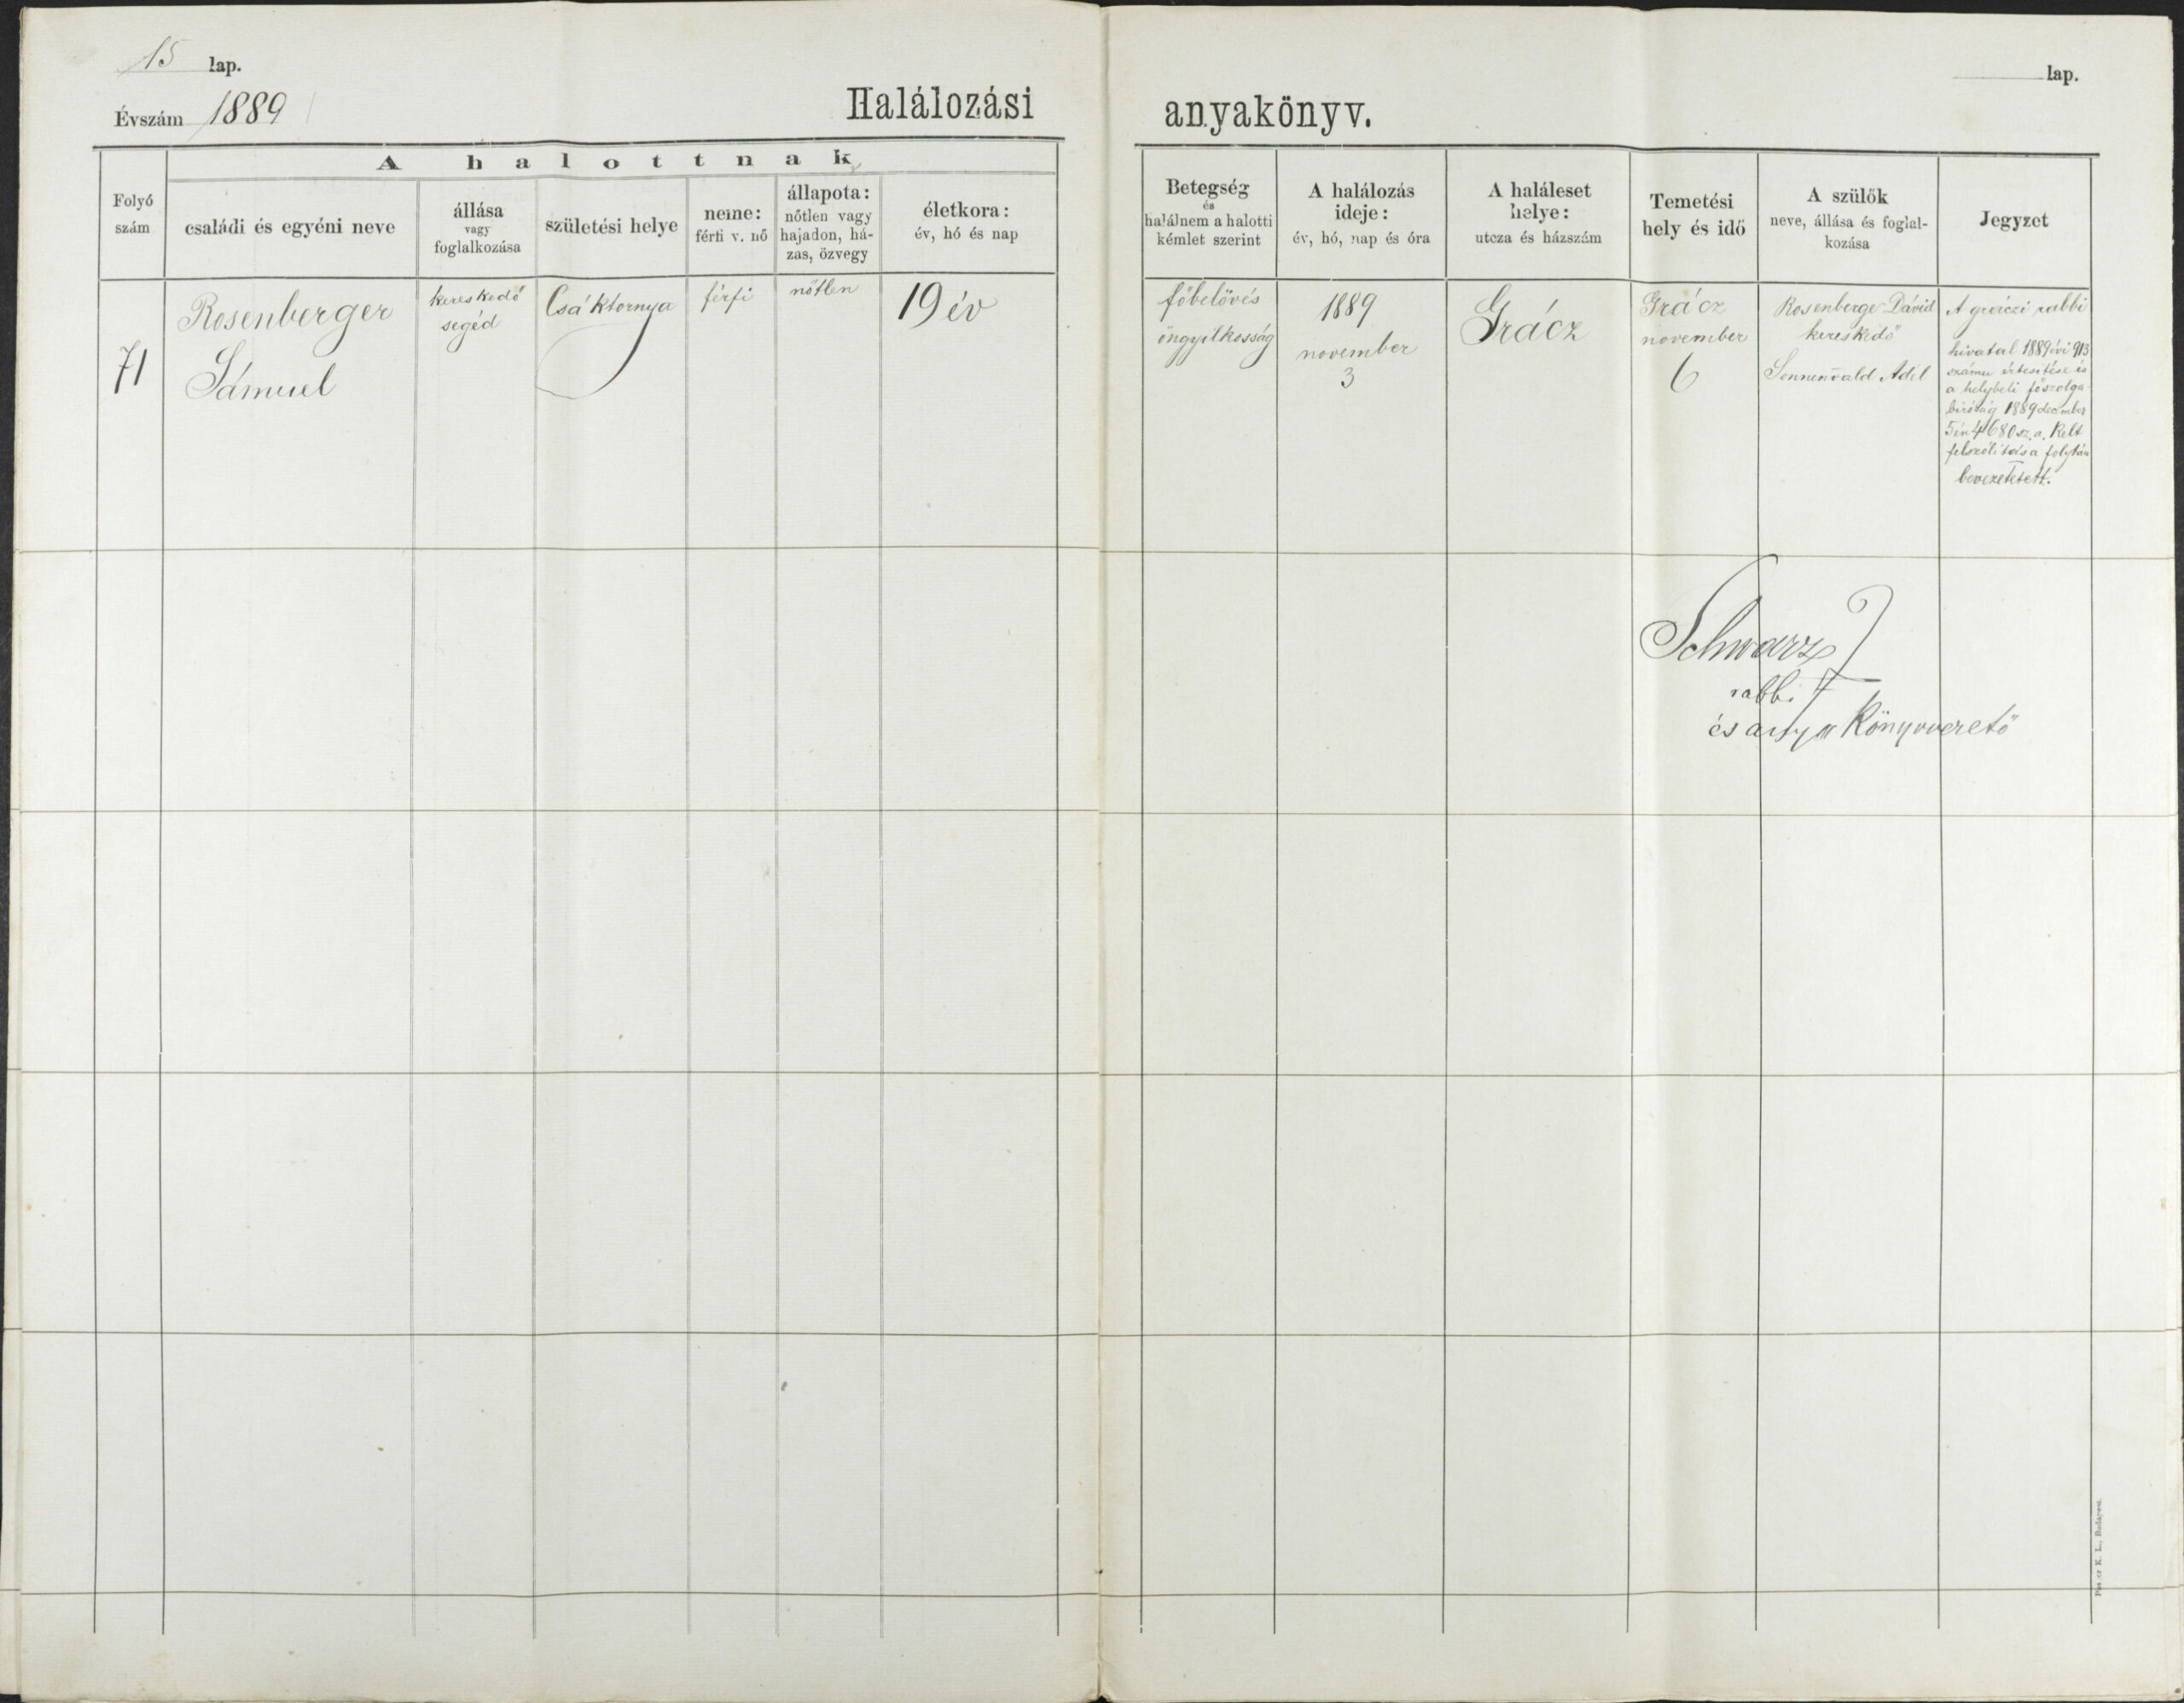 15 lap.
Évszám 1889
Halálozási anyakönyv.
lap.
A halottnak
Folyó
szám
családi és egyéni neve
állása
vagy
foglalkozása
születési helye
neme:
férfi v. nő
állapota:
nőtlen vagy
hajadon, há-
zas, özvegy
életkora:
év, hó és nap
Betegség
és
halálnem a halotti
kémlet szerint
A halálozás
ideje:
év, hó, nap és óra
A haláleset
helye:
utcza és házszám
Temetési
hely és idő
A szülők
neve, állása és foglal-
kozása
Jegyzet
71
Rosenberger
Sámuel
kereskedő
segéd
Csáktornya
férfi
nőtlen
19 év
főbelövés
öngyilkosság
1889
november
3
Grácz
Grácz
november
6
Rosenberge Dávid
kereskedő
Sonnenwald Adél
A gráczi rabbi
hivatal 1889 évi 913
számu értesitése és
a helybeli főszolga-
biróság 1889 december
5én 4680 sz. a. kelt
felszólitása folytán
bevezetetett.
Schwarz J
rabbi
és anyakönyvvezető